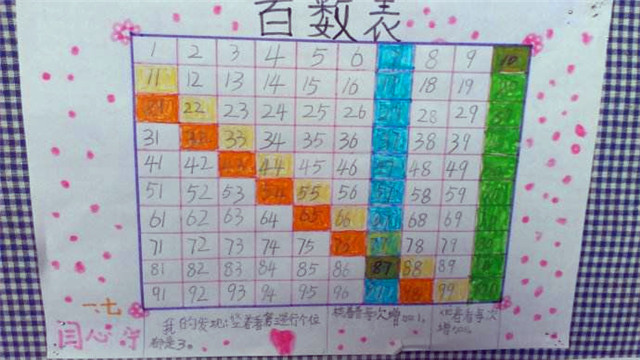 百数表
1 2 3 4 5 6 7 8 9 10
11 12 13 14 15 16 17 18 19
21 22 23 24 25 26 27 28 29
31 32 33 34 35 36 37 38 39
41 42 43 44 45 46 48 49
51 52 53 54 55 56 58 59
61 62 63 64 65 66 67 68 69
71 72 73 74 75 76 77 78 79
81 82 83 84 85 86 87 88 89
91 92 93 94 95 96 97 98 99
一.七
我的发现:竖着看第三行个位
都是3。
横着看每次增加1。
竖着看每次
增加10。